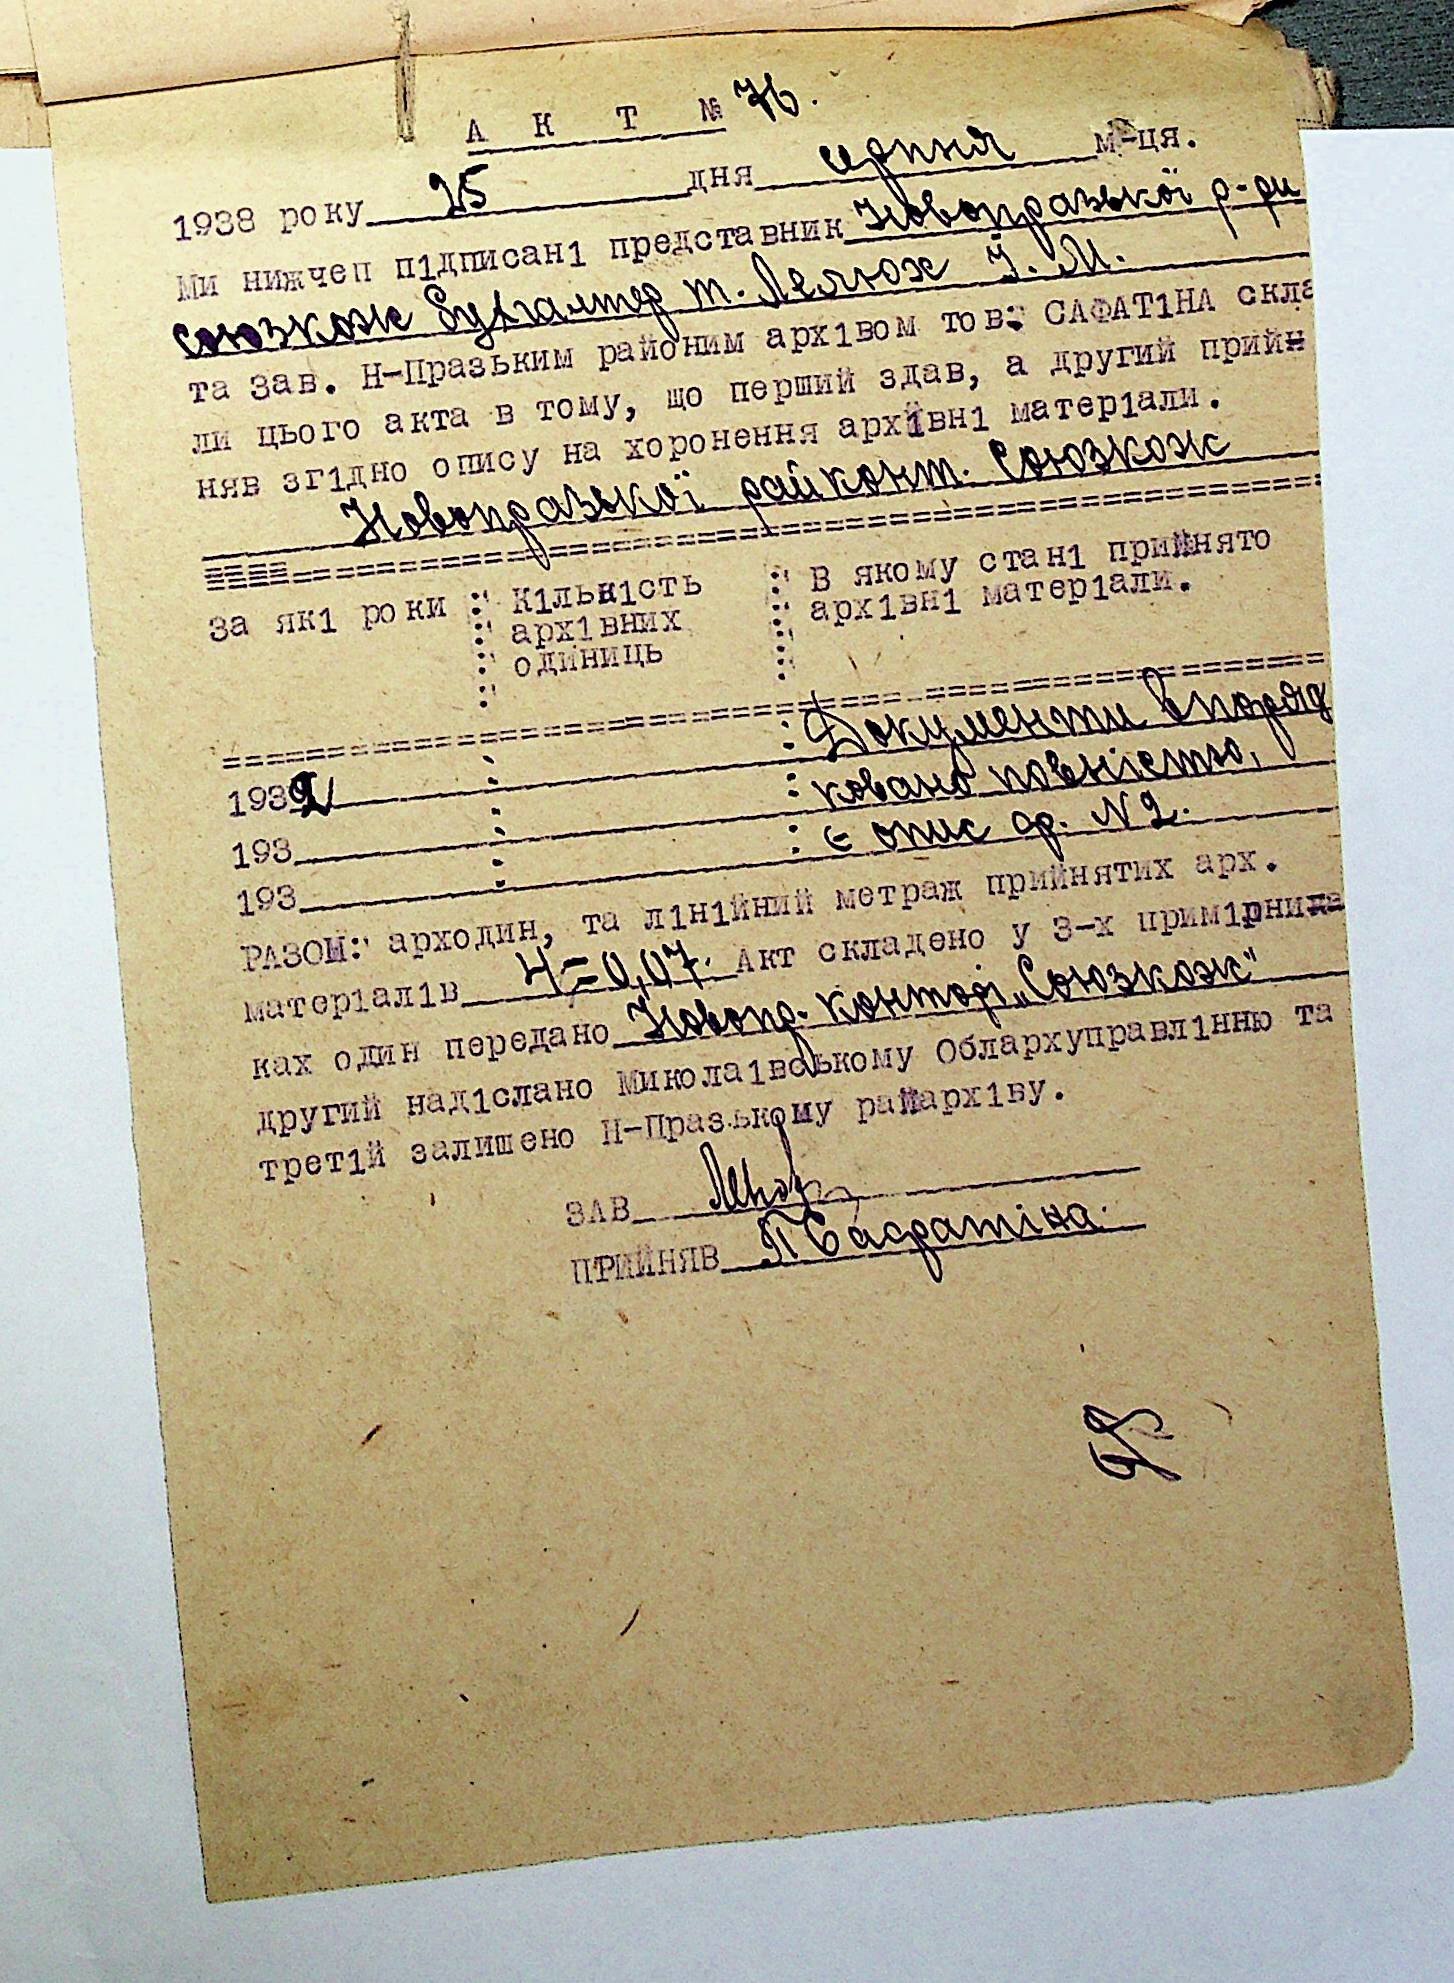 А К Т № 76.
1938 року 25 дня серпня м-ця.
Ми нижчеп п1дписан1 представник Новопразької р-ри
Союзкож бухгалтер т. Лелюх І. М.
та Зав. Н-Празьким районим арх1вом тов: САФАТ1НА скла
ли цього акта в тому, що перший здав, а другий прийн
няв зг1дно опису на хоронення арх1вн1 матер1али.
Новопразької райконт. Союзкож
За як1 роки К1льк1сть арх1вних одиниць В якому стан1 прийнято арх1вн1 матер1али.
1932 Документи впоряд
193 ковано повністю,
193 є опис ф. № 2.
РАЗОМ: арходин, та л1н1йний метраж прийнятих арх.
матер1ал1в 4=0,07. Акт складено у 3-х прим1рни
ках один передано Новопр. конторі „Союзкож"
другий над1слано Микола1вському Облархуправл1нню та
трет1й залишено Н-Празькому райарх1ву.
ЗАВ
ПРИЙНЯВ П Сафатіна.